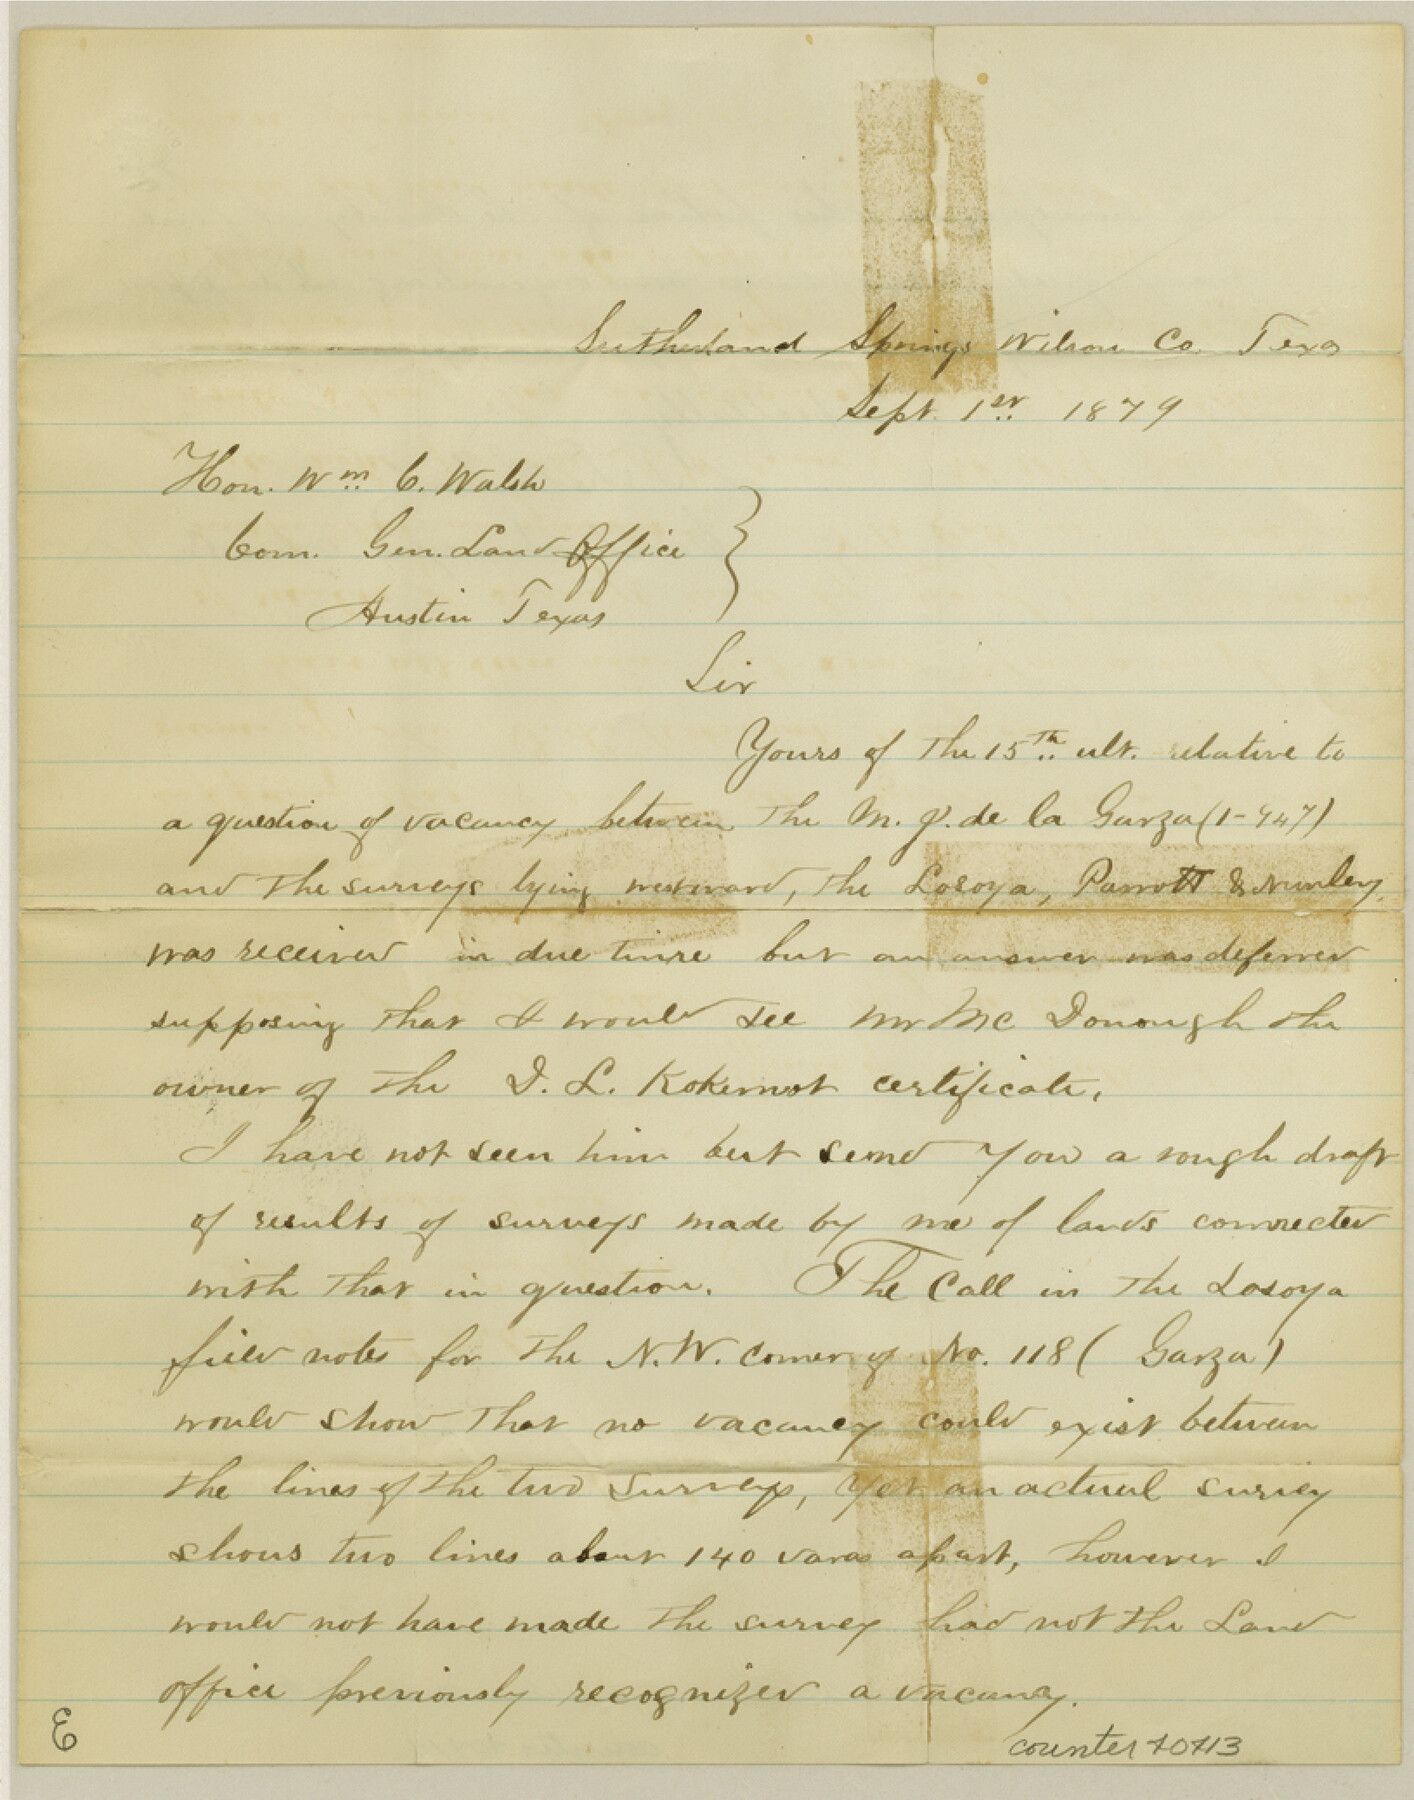 Sutherland Springs Wilson Co. Texas
Sept. 1st 1879
Hon. Wm C. Walsh
Com. Gen. Land Office
Austin Texas
Sir
Yours of the 15th ult. relative to
a question of vacancy between the M. J. de la Garza (1-447)
and the surveys lying westward, the Losoya, Parrott & Nunley,
was received in due time but an answer was deferred
supposing that I would see Mr McDonough the
owner of the D. L. Kokernot certificate.
I have not seen him but send you a rough draft
of results of surveys made by me of lands connected
with that in question. The Call in the Losoya
field notes for the N.W. corner of No. 118 ( Garza )
would show that no vacancy could exist between
the lines of the two surveys, yet an actual survey
shows two lines about 140 varas apart, however I
would not have made the survey had not the Land
office previously recognized a vacancy.
counter 40413
E